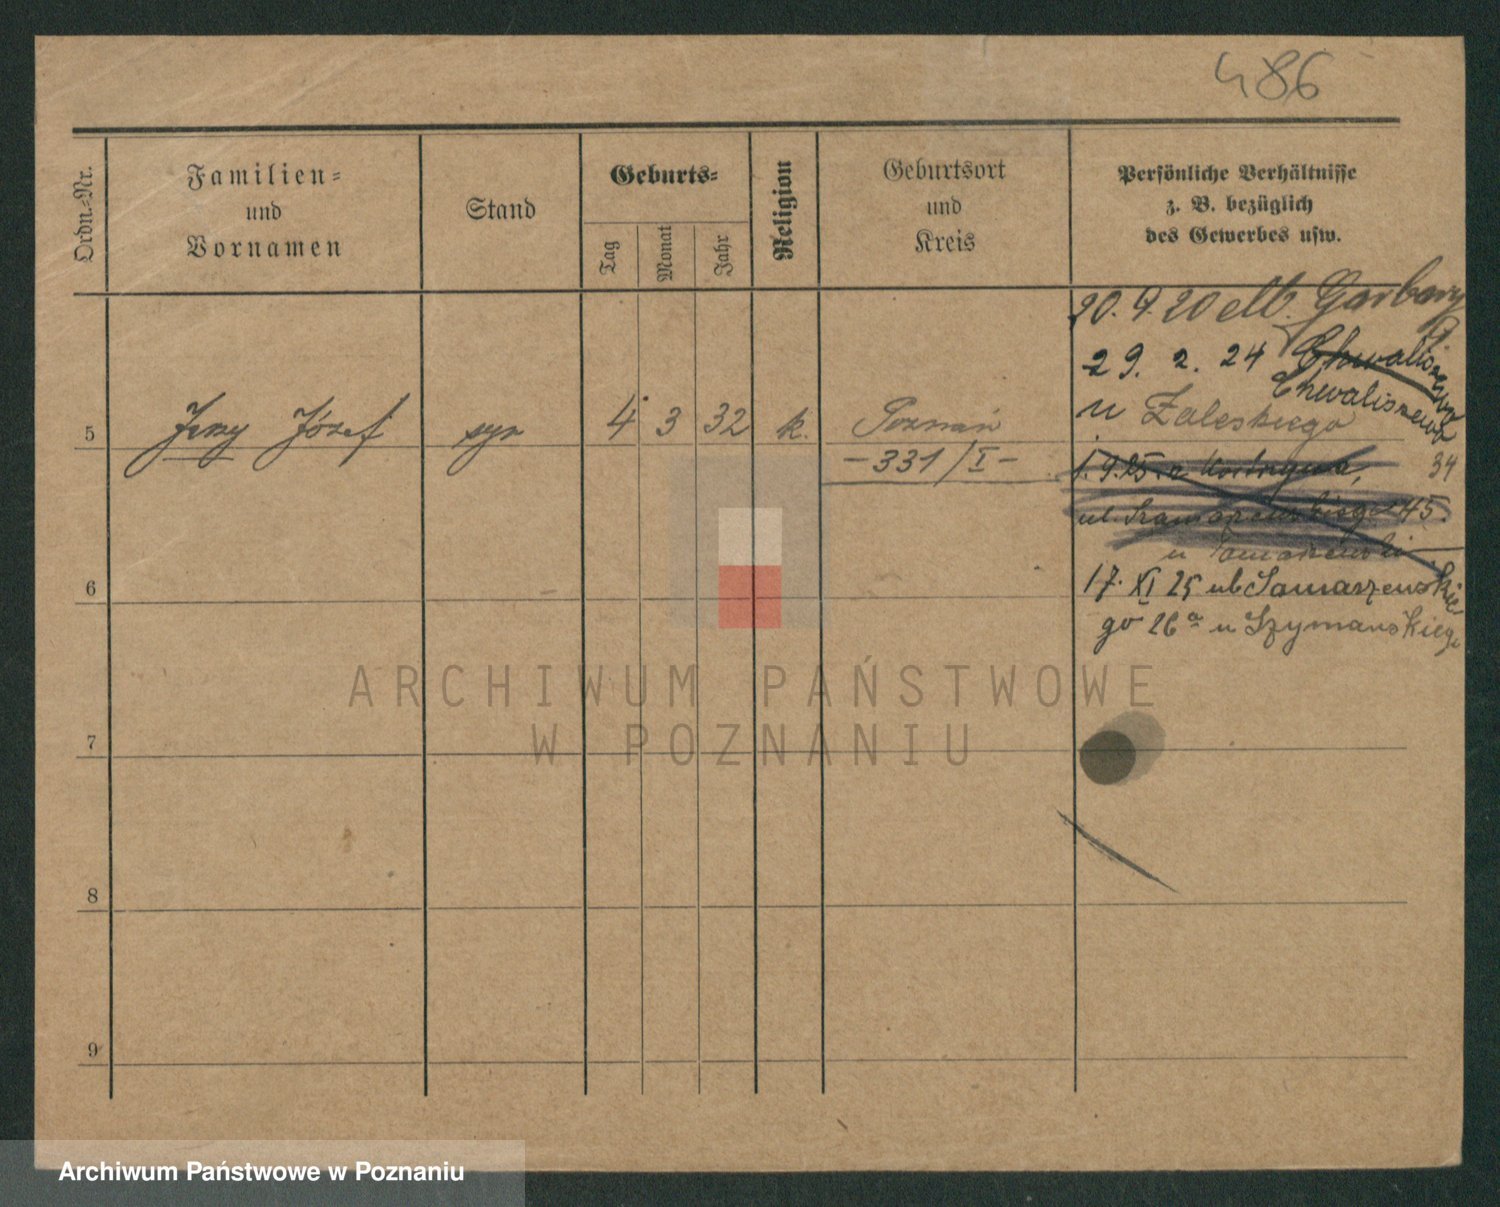 486
Ordn.=Nr.
Familien=
und
Vornamen
Stand
Geburts=
Tag
Monat
Jahr
Religion
Geburtsort
und
Kreis
Persönliche Verhältnisse
z. B. bezüglich
des Gewerbes usw.
20. 9. 20 Garbary
29. 2. 24
Chwaliszewo
u Zaleskiego
34
5 Jerzy Józef syn 4 3 32 k. Poznań
—331/I—
1. 9. 25
ul. 45.
17. XI 25 ul Samarzewskie
go 26a u Szymańskiego
6
7
8
9
ARCHIWUM PAŃSTWOWE
W POZNANIU
Archiwum Państwowe w Poznaniu